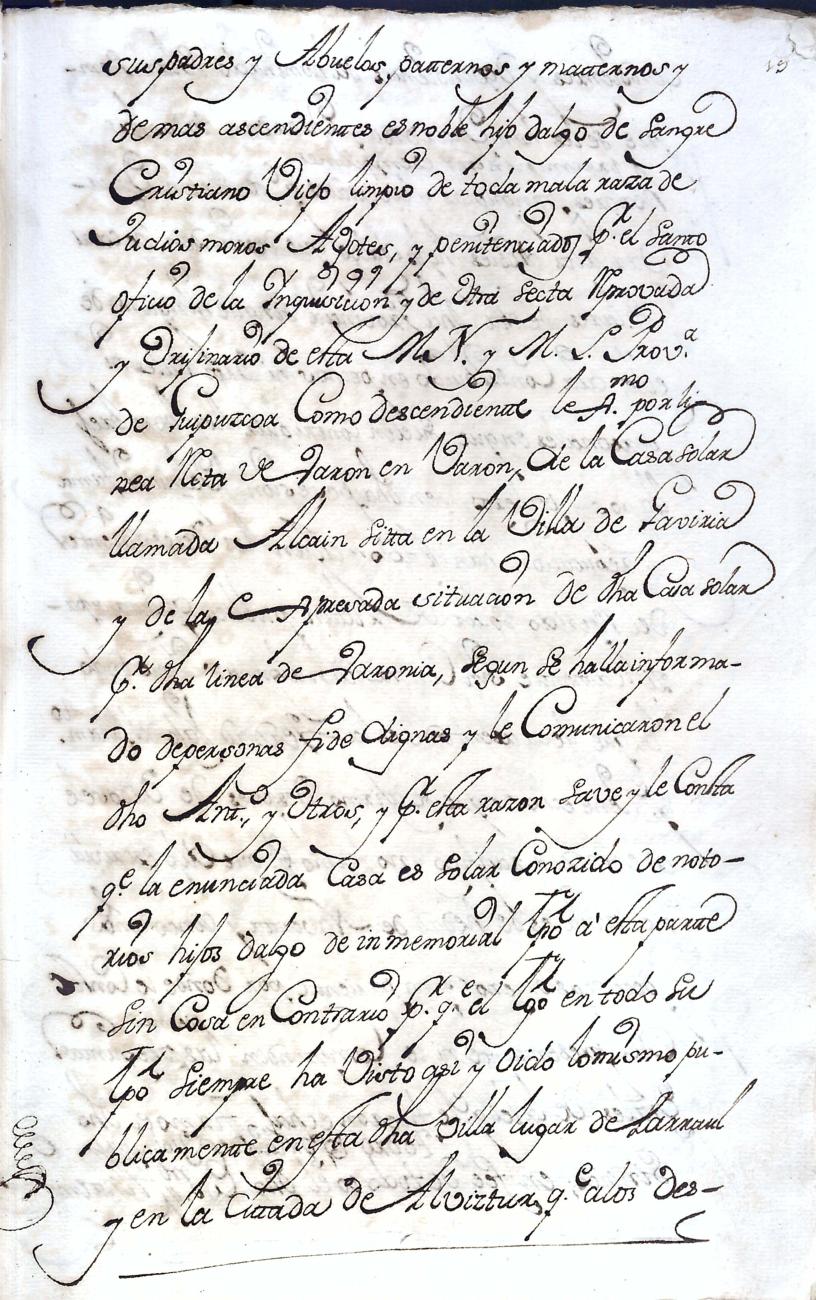 19
sus padres y Abuelos, patternos y matternos y
demas ascendientes es noble hijo dalgo de sangre
Cristiano Viejo limpio de toda mala raza de
Judios moros Agotes, y penitenciados pr. el Santo
oficio de la Inquisicion y de otra secta Reprovada
y Orijinario de esta M. N. y M. L. Prova
de Guipuzcoa Como descendiente lexmo por li-
nea Recta de Varon en Varon, de la Casa solar
llamada Alcain sitta en la Villa de Gaviria
y de la expresada situacion de dha Casa solar
pr. dha linea de Varonia, segun se halla informa-
do de personas fide dignas y le Comunicaron el
dho Anto., y otros, y pr. esta razon save y le Consta
qe. la enunciada Casa es solar Conozido de noto-
rios hijos dalgo de inmemorial tpo a esta partte
sin Cosa en Contrario pr. qe. el tgo en todo su
tpo siempre ha Visto asi y oido lo mismo pu-
blicamente en esta dha Villa lugar de Larraul
y en la Cittada de Alviztur, qe. a los des-